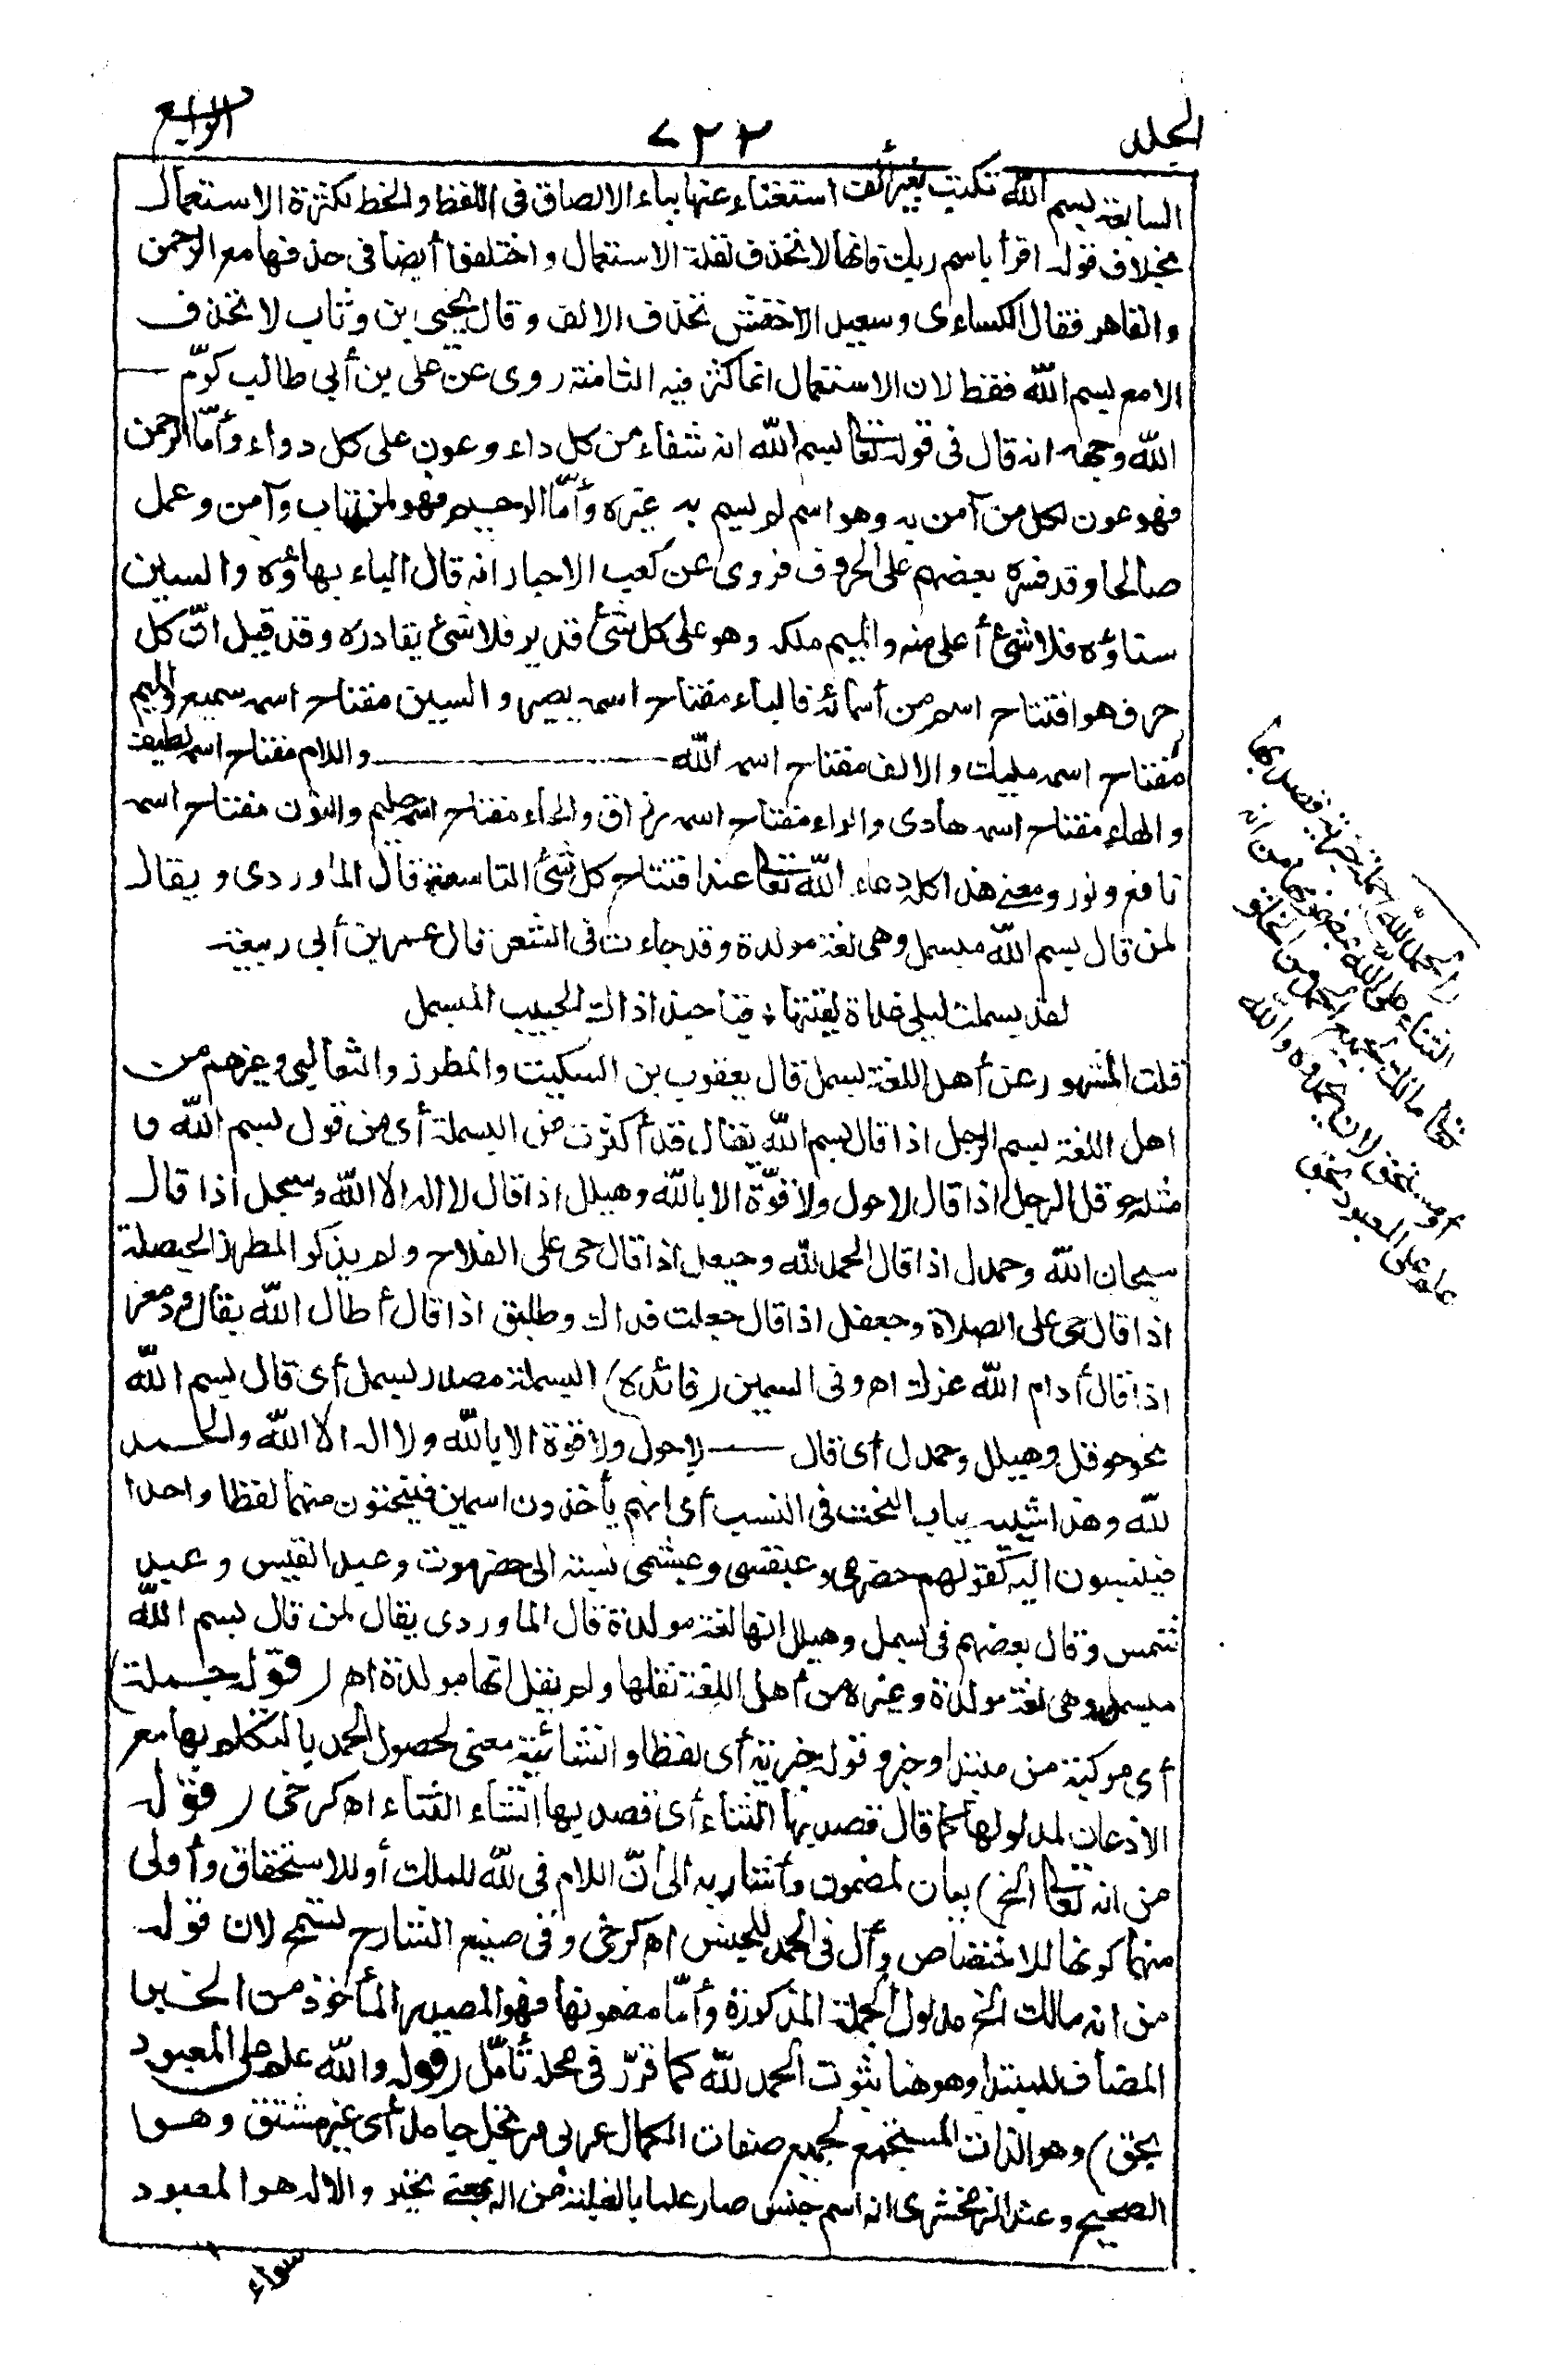 الجلد
٧٢٢
الرابع
السابعة بسم الله تكتب بغير ألف استغناء عنها بباء الالصاق فى اللفظ والخط لكثرة الاستعمال
بخلاف قوله اقرأ باسم ربك فانها لا تحذف لقلة الاستعمال واختلفوا أيضا فى حذفها مع الرحمن
والقاهر فقال الكساءى وسعيد الاخفش تحذف الالف وقال يحيى بن وثاب لا تحذف
الا مع بسم الله فقط لان الاستعمال انما كثر فيه الثامنة روى عن على بن أبى طالب كرّم
الله وجهه انه قال فى قوله تعالى بسم الله انه شفاء من كل داء وعون على كل دواء وأمّا الرحمن
فهو عون لكل من آمن به وهو اسم لم يسم به غيره وأمّا الرحيم فهو لمن تاب وآمن وعمل
صالحا وقد فسره بعضهم على الحروف فروى عن كعب الاحبار انه قال الباء بهاؤه والسين
سناؤه فلا شئ أعلى منه والميم ملكه وهو على كل شئ قدير فلا شئ يقادره وقد قيل انّ كل
حرف هو افتتاح اسم من أسمائه فالباء مفتاح اسمه بصير والسين مفتاح اسمه سميع والميم
مفتاح اسمه مليك والالف مفتاح اسمه الله واللام مفتاح اسمه لطيف
والهاء مفتاح اسمه هادى والراء مفتاح اسمه رزاق والحاء مفتاح اسمه حليم والنون مفتاح اسمه
نافع ونور ومعنى هذا كله دعاء الله تعالى عند افتتاح كل شئ التاسعة قال الماوردى ويقال
لمن قال بسم الله مبسمل وهى لغة مولدة وقد جاءت فى الشعر قال عمر بن أبى ربيعة
لقد بسملت ليلى غداة لقيتها ؛ فيا حبذا ذاك الحبيب المبسمل
قلت المشهور عن أهل اللغة بسمل قال يعقوب بن السكيت والمطرز والثعالبى وغيرهم من
اهل اللغة بسمل الرجل اذا قال بسم الله يقال قد أكثرت من البسملة أى من قول بسم الله و
مثله حوقل الرجل اذا قال لا حول ولا قوّة الا بالله وهيلل اذا قال لا اله الا الله وسبحل اذا قال
سبحان الله وحمدل اذا قال الحمد لله وحيعل اذا قال حى على الفلاح ولم يذكر المطرز الحيصلة
اذا قال حى على الصلاة وجعفل اذا قال جعلت فداك وطلبق اذا قال أطال الله بقاك ودمعز
اذا قال أدام الله عزك اه وفى السمين (فائده) البسملة مصدر بسمل أى قال بسم الله
نحو حوقل وهيلل وحمدل أى قال لا حول ولا قوة الا بالله ولا اله الا الله والحمد
لله وهذا شبيه بباب النحت فى النسب أى انهم يأخذون اسمين فينحتون منهما لفظا واحدا
فينسبون اليه كقولهم حضرمى وعبقسى وعبشمى نسبة الى حضرموت وعبد القيس وعبد
شمس وقال بعضهم فى بسمل وهيلل انها لغة مولدة قال الماوردى يقال لمن قال بسم الله
مبسمل وهى لغة مولدة وغيره من أهل اللغة نقلها ولم يقل انها مولدة اه (قوله جملة)
أى مركبة من مبتدا وخبر وقوله خبرية أى لفظا وانشائية معنى لحصول الحمد بالتكلم بها مع
الاذعان لمدلولها كما قال قصد بها الثناء أى قصد بها انشاء الثناء اه كرخى (قوله
من انه تعالى الخ) بيان لمضمون وأشار به الى أنّ اللام فى لله للملك أو للاستحقاق وأولى
منهما كونها للاختصاص وأل فى الحمد للجنس اه كرخى وفى صنيع الشارح تسمح لان قوله
من انه مالك الخ مدلول الجملة المذكورة وأمّا مضمونها فهو المصدر المأخوذ من الخبر
المضاف للمبتدا وهو هنا ثبوت الحمد لله كما قرّر فى محله تأمّل (قوله والله علم على المعبود
بحق) وهو الذات المستجمع لجميع صفات الكمال عربى مرتجل جامد أى غير مشتق وهو
الصحيح وعند الزمخشرى انه اسم جنس صار علما بالغلبة من اله بمعنى تحير والاله هو المعبود
سواء
(الحمد لله) جملة خبرية قصد بها
الثناء على الله بمضمونها من انه
تعالى مالك لجميع الحمد من الخلق
أو مستحق لان يحمدوه والله
علم على المعبود بحق